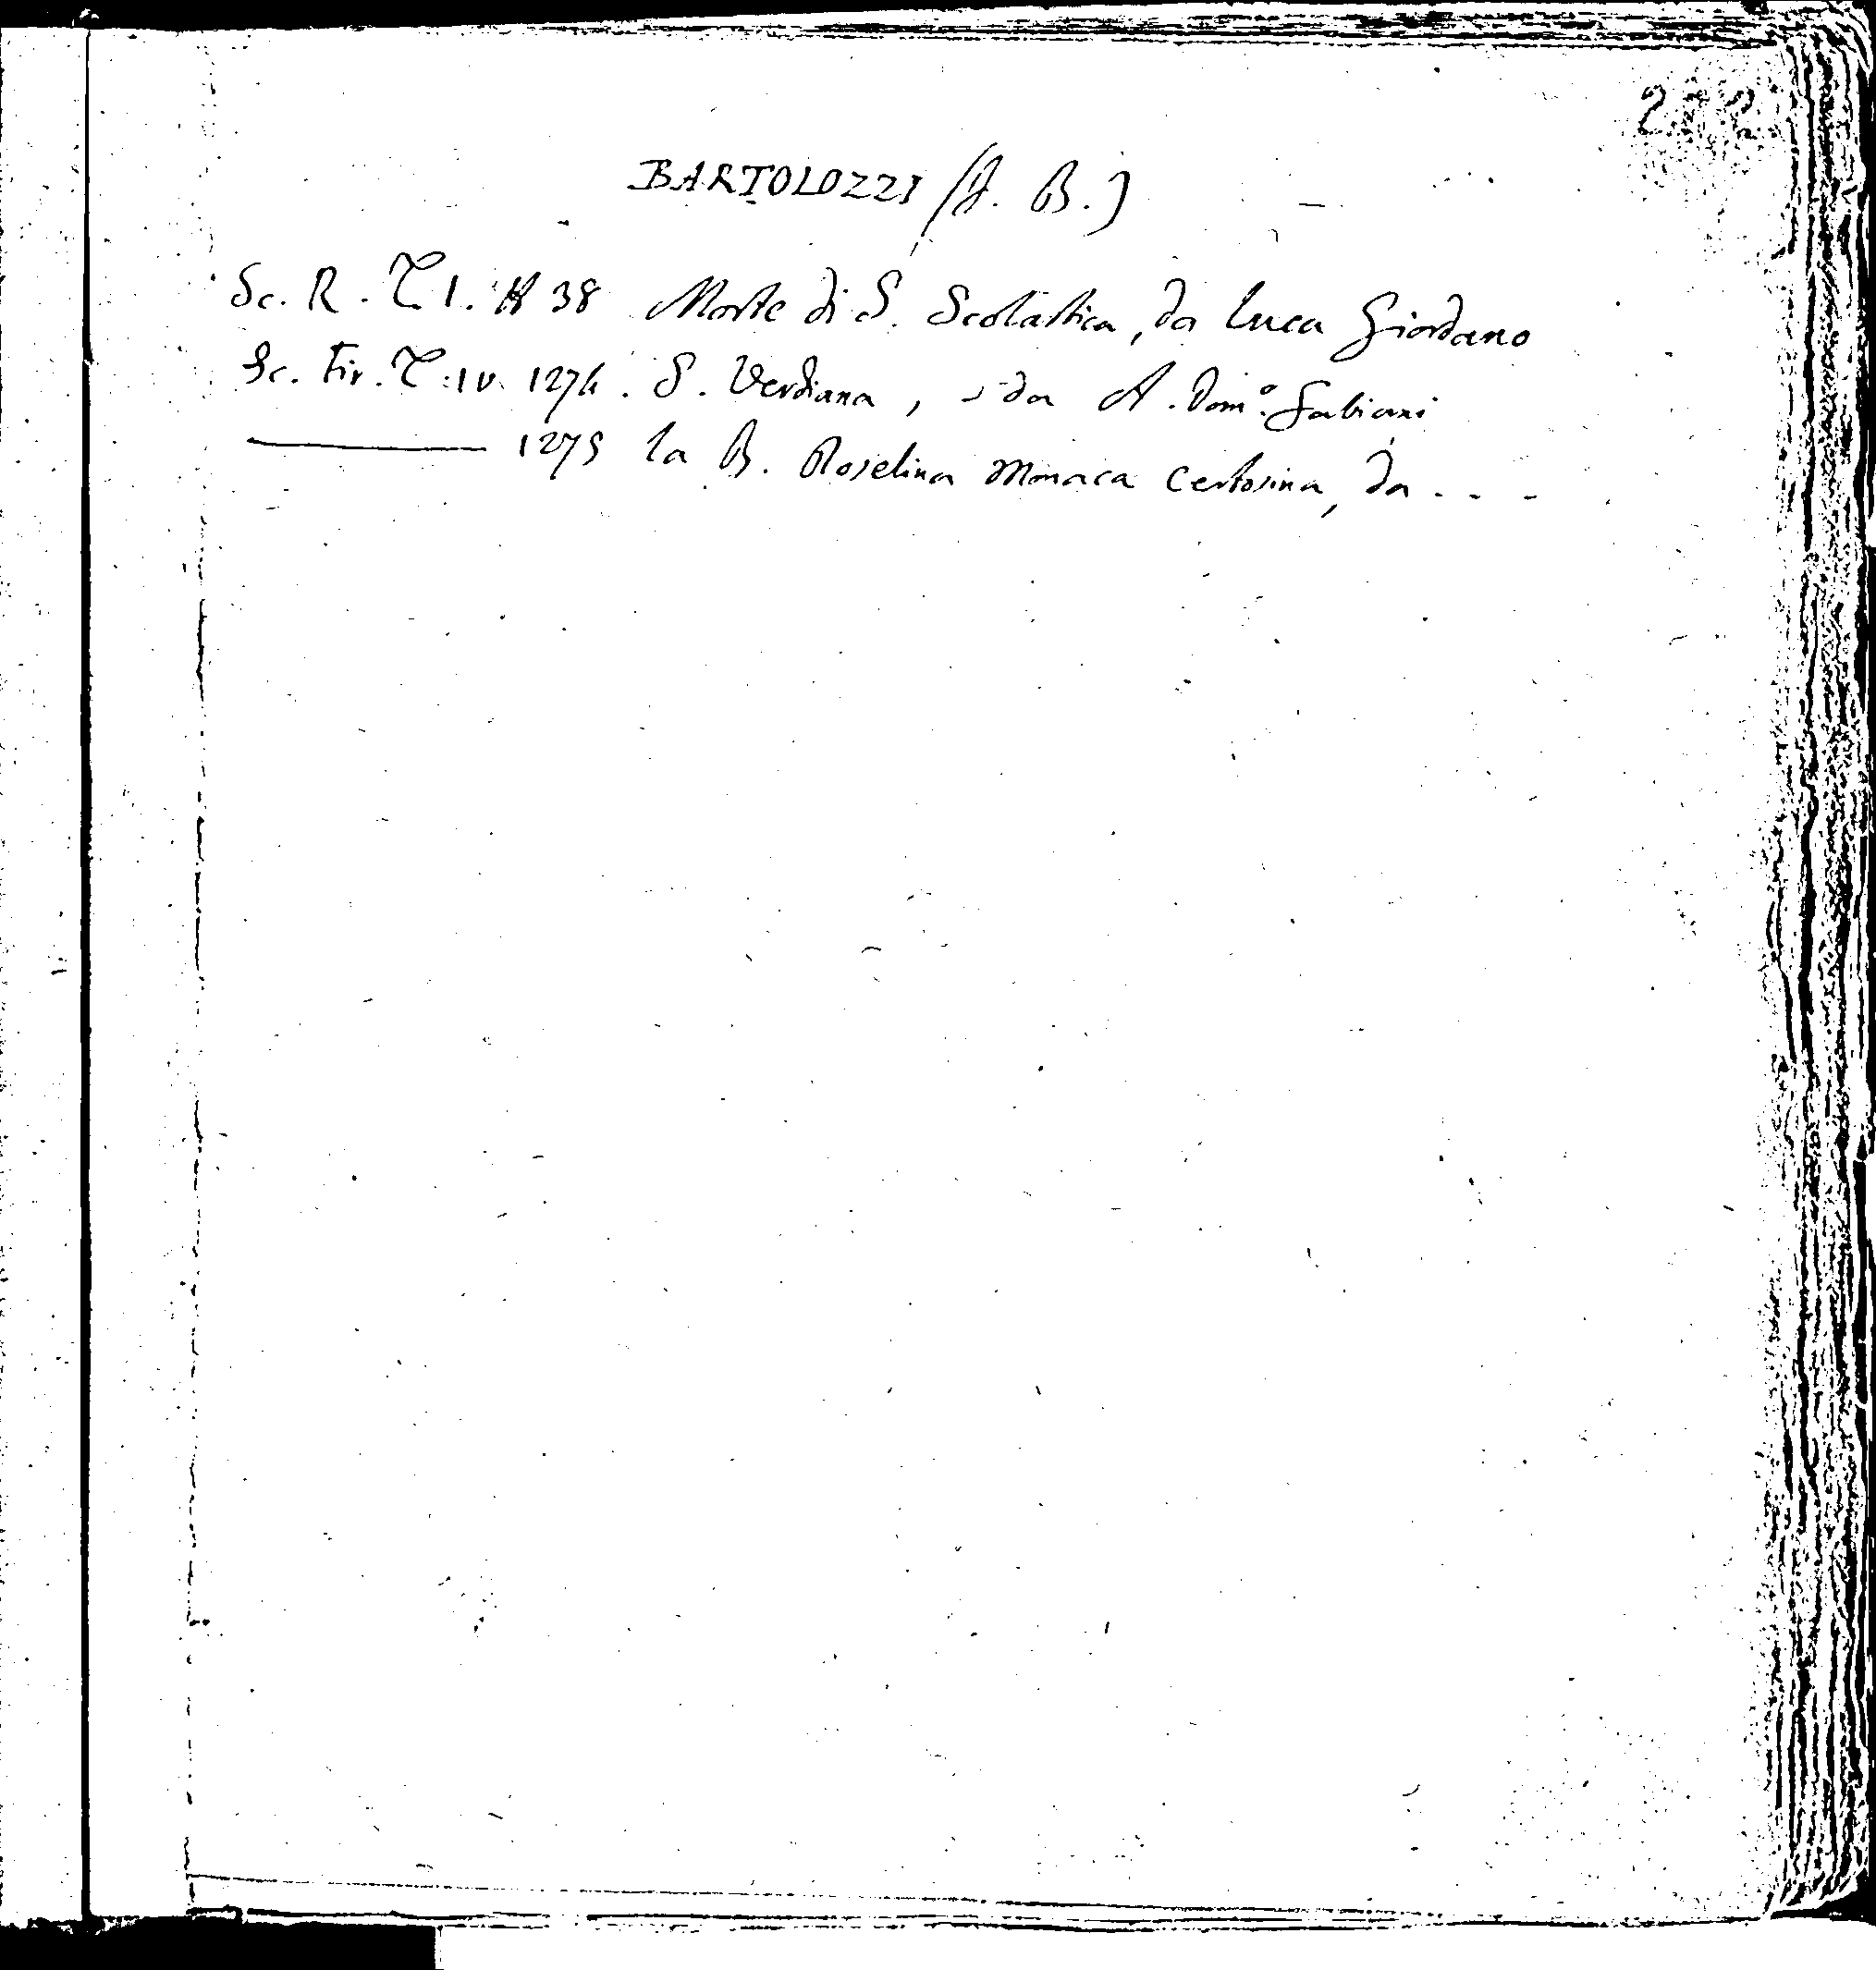 BARTOLOZZI (A. B.)
Sc. R. T I. 38 Morte di S. Scolastica, da Luca Giordano
Sc. Fir. T. IV. 1274. S. Verdiana, da A. Dom.º Gabiani
——— 1275 la B. Roselina Monaca Certosina, da . . .